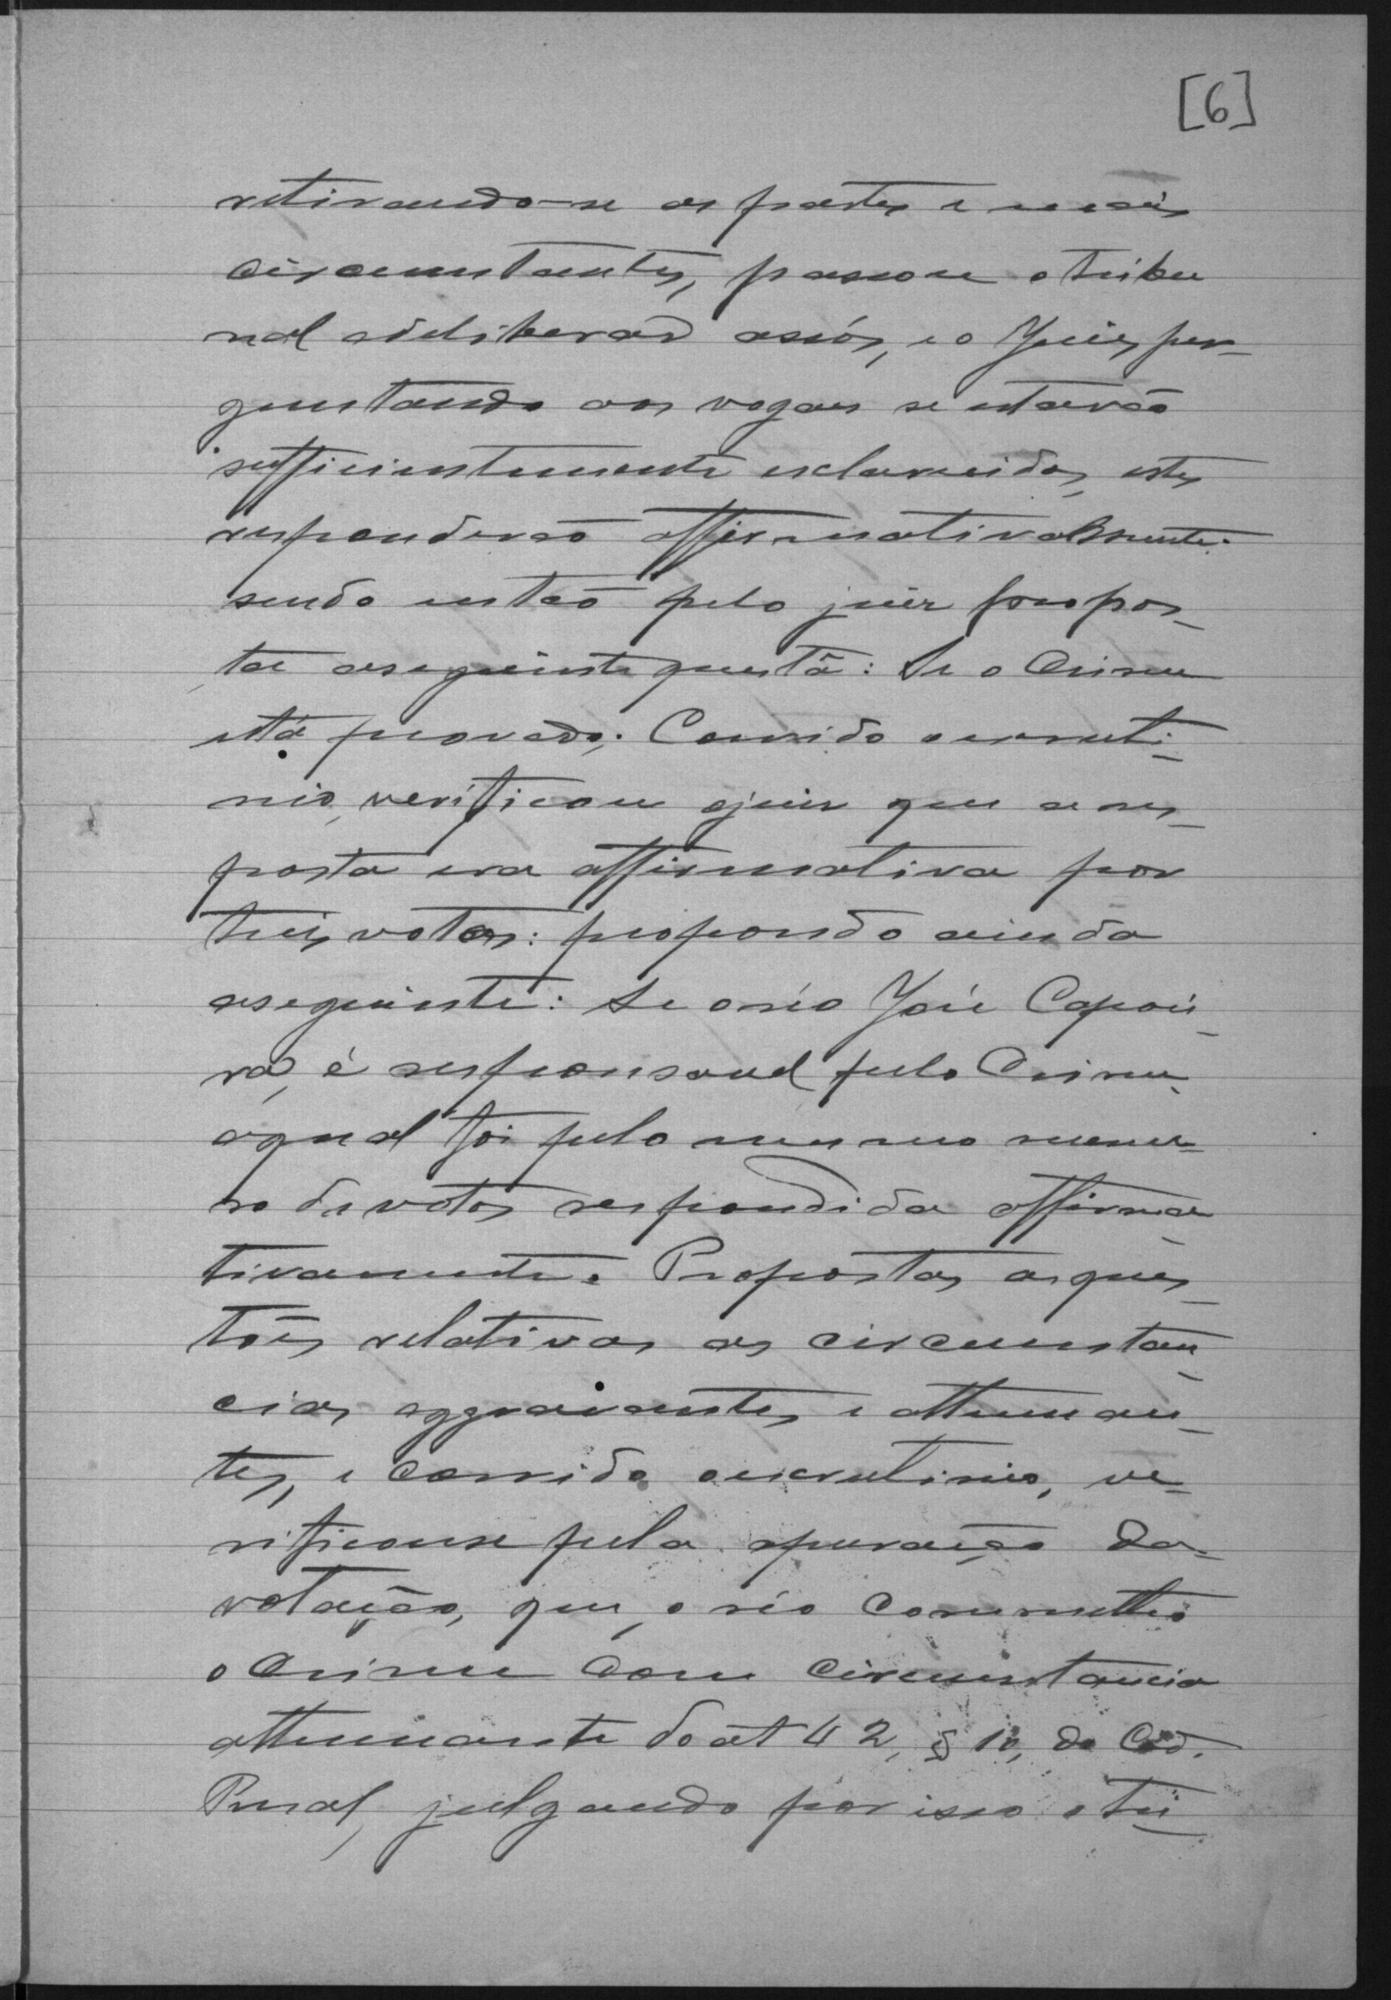 [6]
retirando-se as partes e mais
circumstantes, passou o tribu
nal a deliberar a sós, e o Juiz per-
guntando aos vogaes se estavão
sufficientemente esclarecidos, estes
responderão affirmativamente:
sendo então pelo juiz propos-
ta a seguinte questã: Se o Crime
está provado; Corrido o escruti-
nio, verificou o juiz que a res-
posta era affirmativa por
treis votos: propondo ainda
a seguinte: Se o réo José Capoei-
ra, é responsavel pelo Crime,
a qual foi pelo mesmo nume-
ro de votos respondida affirma-
tivamente. Propostas as ques-
tões relativas as circumstan-
cias aggravantes e attenuan-
tes, e corrido o escrutinio, ve-
rificouse pela apuração da
votação, que o réo commetteo
o Crime Com Circumstancia
attenuante do art 42, § 10, do Cod.
Penal, julgando por isso o tri-